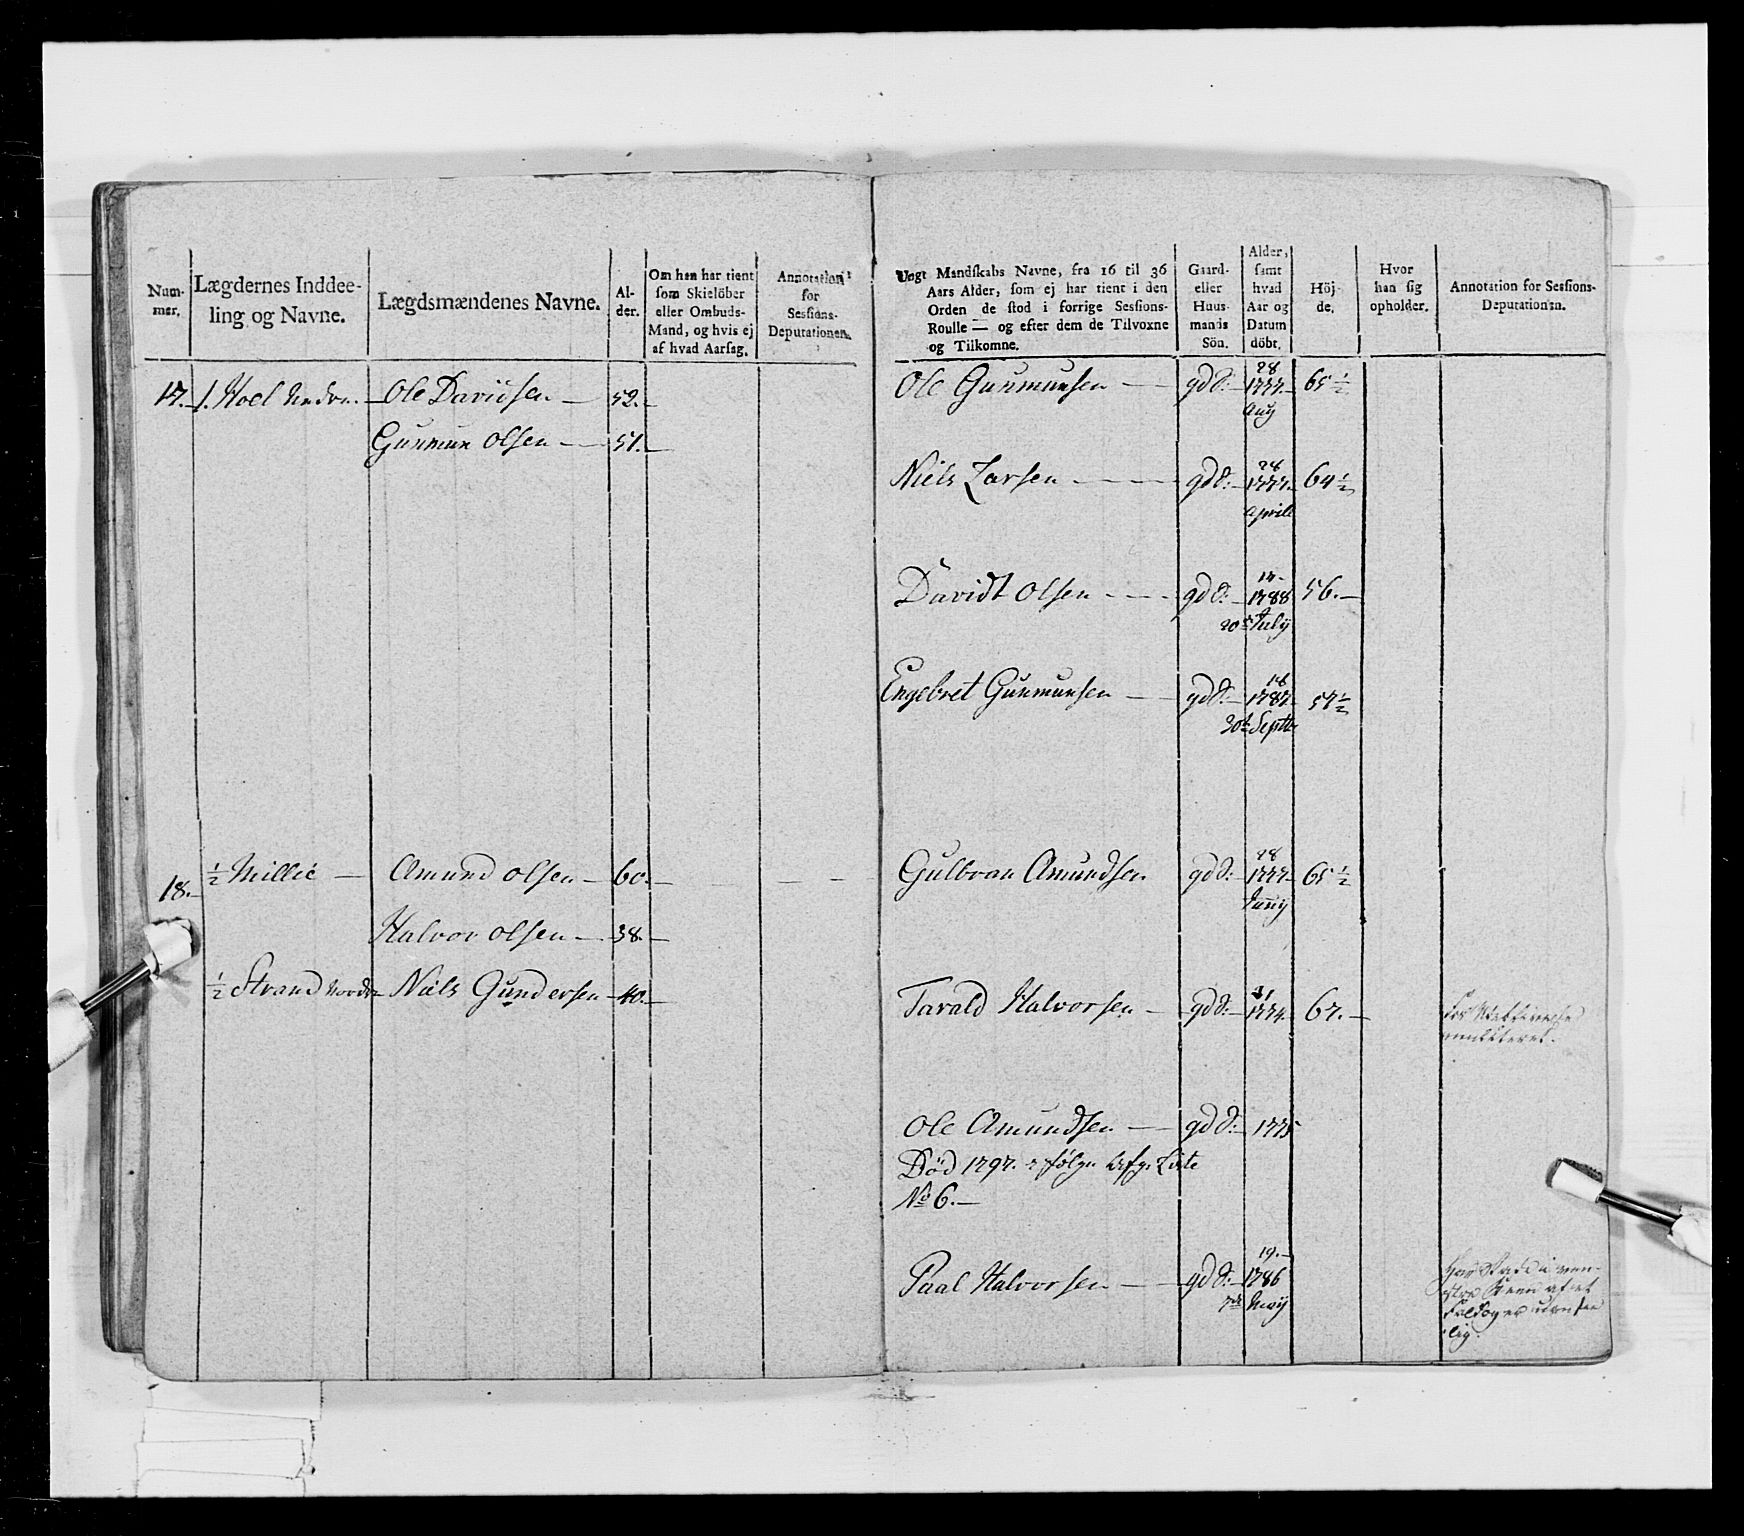 Num-
mer.
Lægdernes Inddee-
ling og Navne.
Lægdsmændenes Navne.
Al-
der.
Om han har tient
som Skielöber
eller Ombuds-
Mand, og hvis ej
af hvad Aarsag.
Annotation
for
Sessions-
Deputationen.
17. 1. Hoel Nedre Ole Davidsen 52.
Gunmun Olsen 51.
18. ½ Millie Amund Olsen 60.
Halvor Olsen 38.
½ Strand Nordre Niels Gundersen 40.
Ungt Mandskabs Navne, fra 16 til 36
Aars Alder, som ej har tient i den
Orden de stod i forrige Sessions-
Roulle — og efter dem de Tilvoxne
og Tilkomne.
Gaard-
eller
Huus-
mands
Sön.
Alder,
samt
hvad
Aar og
Datum
döbt.
Höj-
de.
Hvor
han sig
opholder.
Annotation for Sessions-
Deputationen.
28
Ole Gunmunsen gd S: 1777. 65 ½
Aug
28
Niels Larsen gd S: 1777. 64 ½
April
14
Davidt Olsen gd S: 1788 56.
20de July
18
Engebret Gunmunsen gd S: 1787. 57 ½
30te Septbr
28
Gulbran Amundsen gd S: 1777 65 ½
Juny
31
Tarald Halvorsen gd S: 1774. 67.
for
Ole Amundsen gd S: 1775
Död 1797. Følge Afg. Liste
No 6.
19.
Paal Halvorsen gd S: 1786
7de May
Har Skade i ven-
stre Been af et
Fald og er
lig.